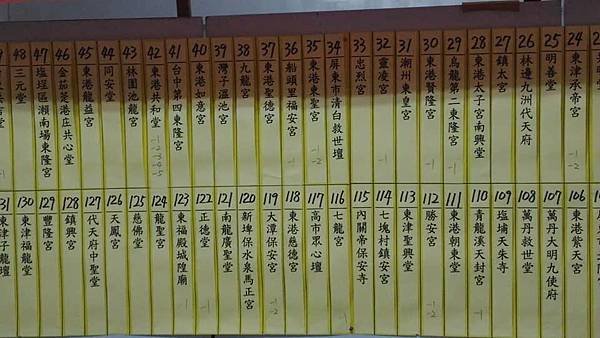 48 三元堂
47 塩埕區瀨南場東隆宮
46 金茄萣港庄共心堂
45 東港龍益宮
44 同安堂
43 林園池龍宮
42 東港共和堂 -1 -2 -3 -4 -5
41 台中第四東隆宮
40 東港如意宮
39 灣子溫池宮
38 九龍宮
37 東港聖德宮
36 船頭里福安宮 -1
35 東港東聖宮 -1 -2
34 屏東市清白救世壇
33 忠烈宮
32 靈凌宮 -1
31 潮州東皇宮
30 東港賢隆宮 -1
29 烏龍第二東隆宮 -1
28 東港太子宮南興堂
27 鎮太宮
26 林邊九洲代天府
25 明善堂
24 東津承帝宮 -1 -2
131 東津子龍壇
130 東津福龍堂
129 豐隆宮
128 鎮興宮
127 代天府中聖堂
126 天鳳宮
125 慈佛堂
124 龍聖宮
123 東福殿城隍廟 -1
122 正德堂 -1
121 南龍廣聖堂
120 新埤保水泉馬正宮
119 大潭保安宮 -1 -2
118 東港慈德宮
117 高市眾心壇
116 七龍宮 -1
115 內關帝保安寺
114 七塊村鎮安宮
113 東津聖興堂
112 勝安宮 -1 -2
111 東港朝東堂
110 青龍溪天封宮 -1
109 塩埔天朱寺
108 萬丹救世堂
107 萬丹大明九使府
106 東港紫天宮